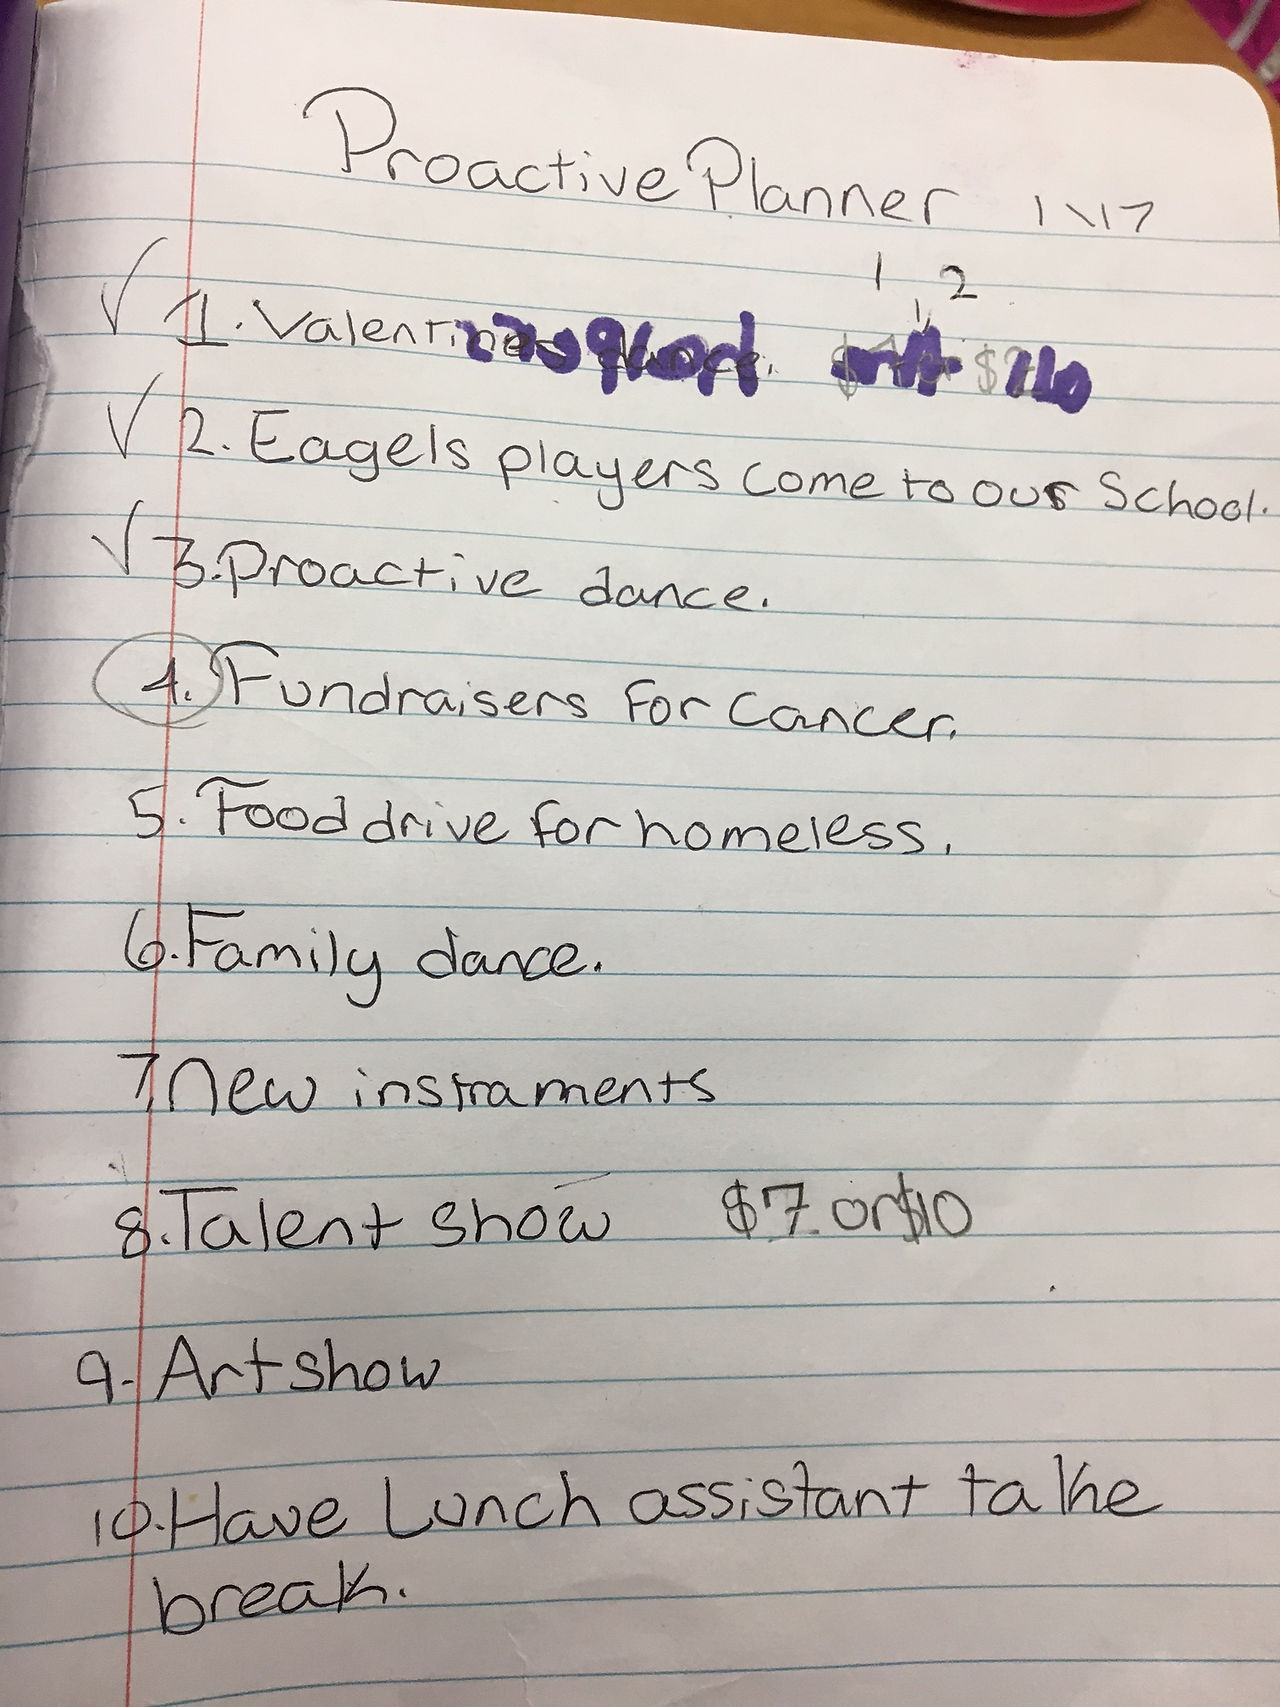 Proactive Planner 1\17
1 2
1. Valentines dance. $ $
2. Eagels players come to our School.
3. Proactive dance.
4. Fundraisers for Cancer.
5. Food drive for homeless.
6. Family dance.
7, New instraments
8. Talent show $7 or $10
9. Art show
10. Have Lunch assistant take
break.